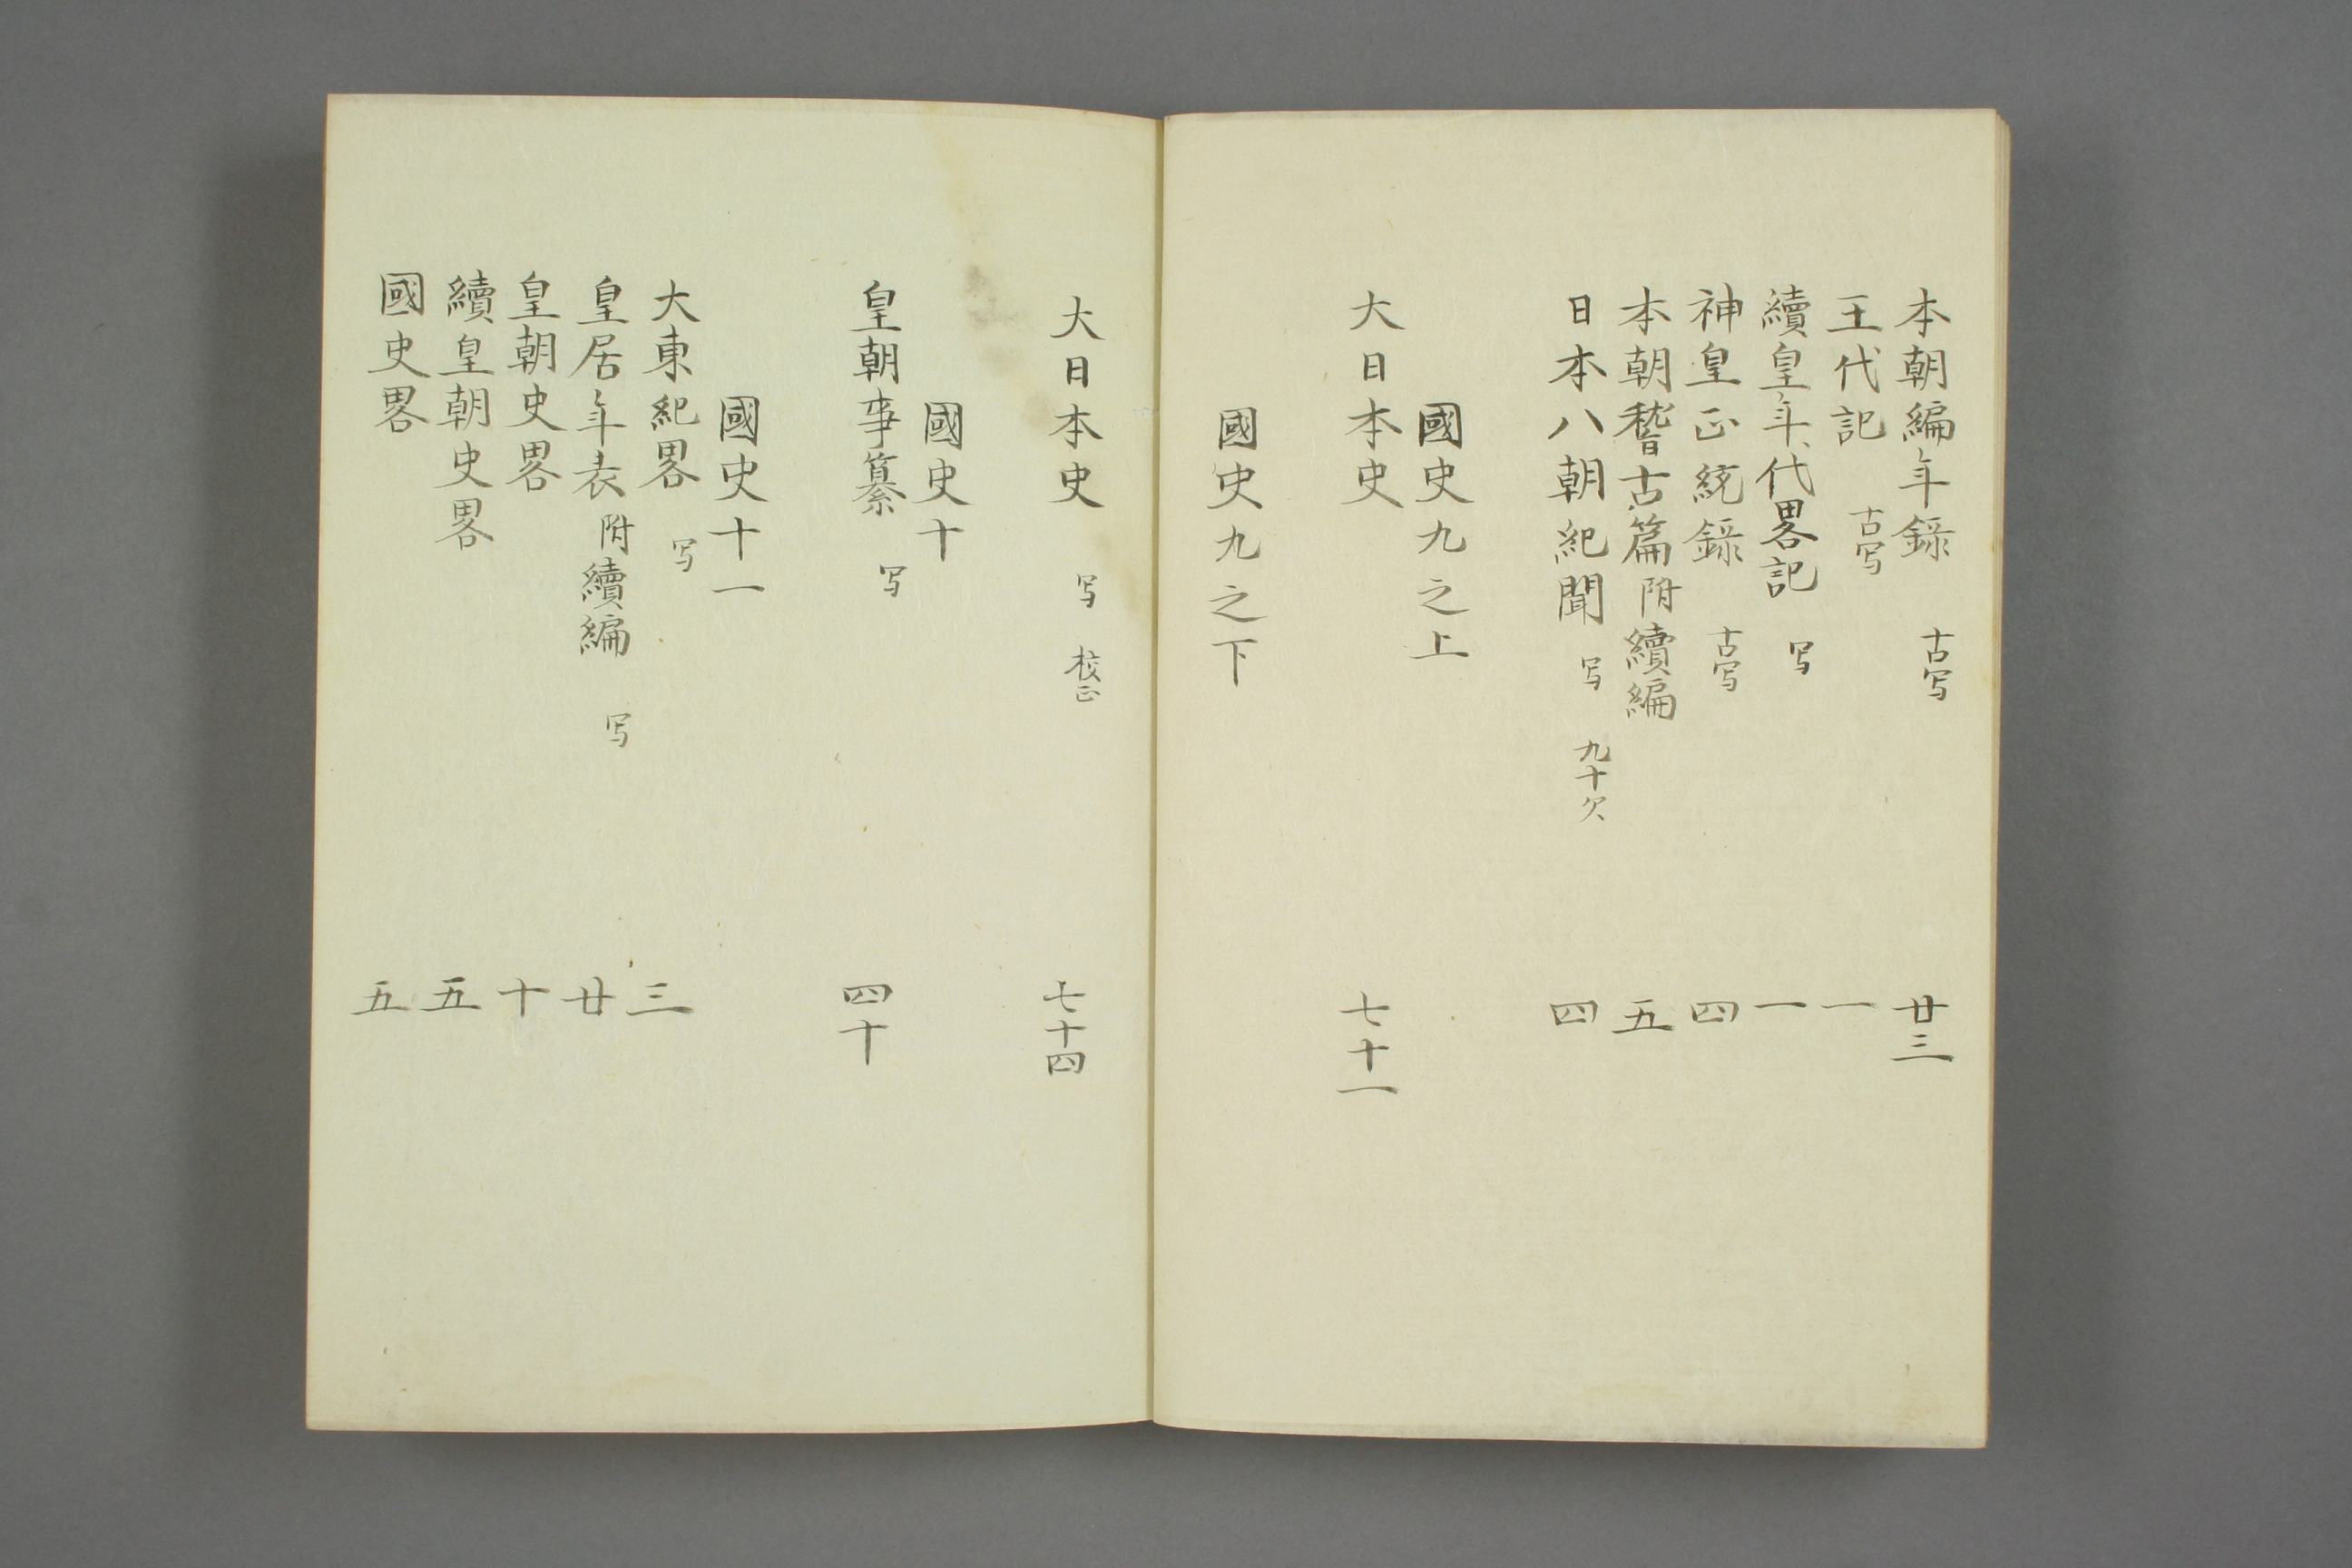 本朝編年錄 古写 廿三
王代記 古写 一
續皇年代畧記 写 一
神皇正統錄 古写 四
本朝稽古篇 附續編 五
日本八朝紀聞 写 九十欠 四
國史九之上
大日本史 七十一
國史九之下
大日本史 写 校正 七十四
國史十
皇朝事纂 写 四十
國史十一
大東紀畧 写 三
皇居年表 附續編 写 廿
皇朝史畧 十
續皇朝史畧 五
國史畧 五